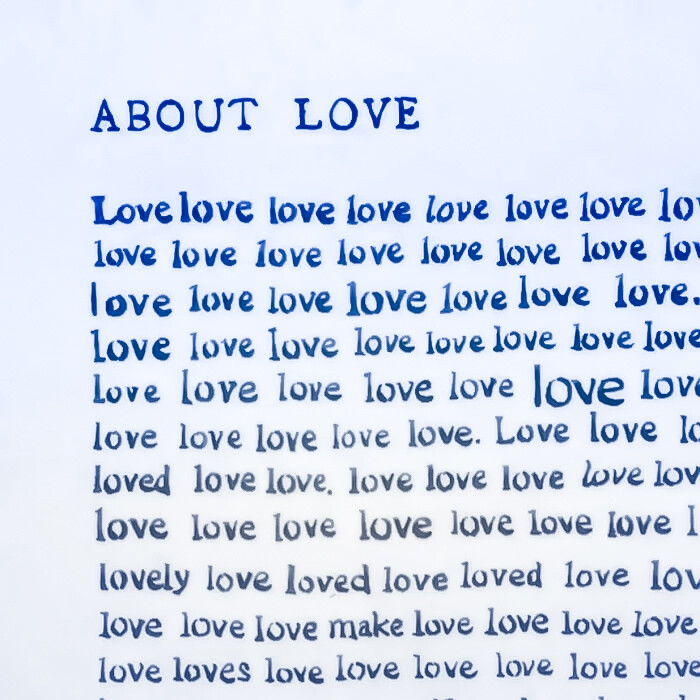 ABOUT LOVE
Love love love love love love love
love love love love love love love
love love love love love love love.
love love love love love love love love
love love love love love love love
love love love love love. Love love
loved love love. love love love love
love love love love love love love
lovely love loved love loved love
love love love make love love love love
love loves love love love love love love